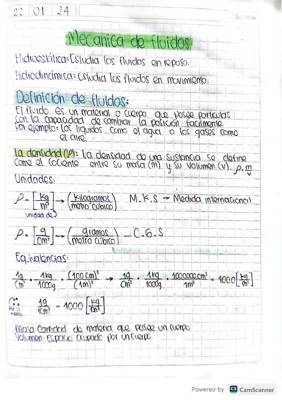 22 / 01 / 24
Mecanica de fluidos
Hidroestática: Estudia los fluidos en reposo.
Hidrodinámica: Estudia los fluidos en movimiento.
Definición de fluidos:
El fluido es un material o cuerpo que posee particulas
con la capacidad de cambiar la posición facilmente.
Por ejemplo: los liquidos como el agua o los gases como
el aire.
La densidad (ρ): La densidad de una sustancia se define
como el cociente entre su masa (m) y su volumen (v). ρ = m
Unidades:
ρ = [kg/m³] → (kilogramos/metro cubico) M.K.S → Medida internacional
unidad de
ρ = [g/cm³] → (gramos/metro cubico) → C.G.S
Equivalencias:
1g/cm³ · 1kg/1000g · (100cm)³/(1m)³ → 1g/cm³ · 1kg/1000g · 1000000cm³/1m³ = 1000 [kg/m³]
1g/cm³ = 1000 [kg/m³]
Masa Cantidad de materia que posee un cuerpo
Volumen Espacio ocupado por un cuerpo
Powered by CS CamScanner